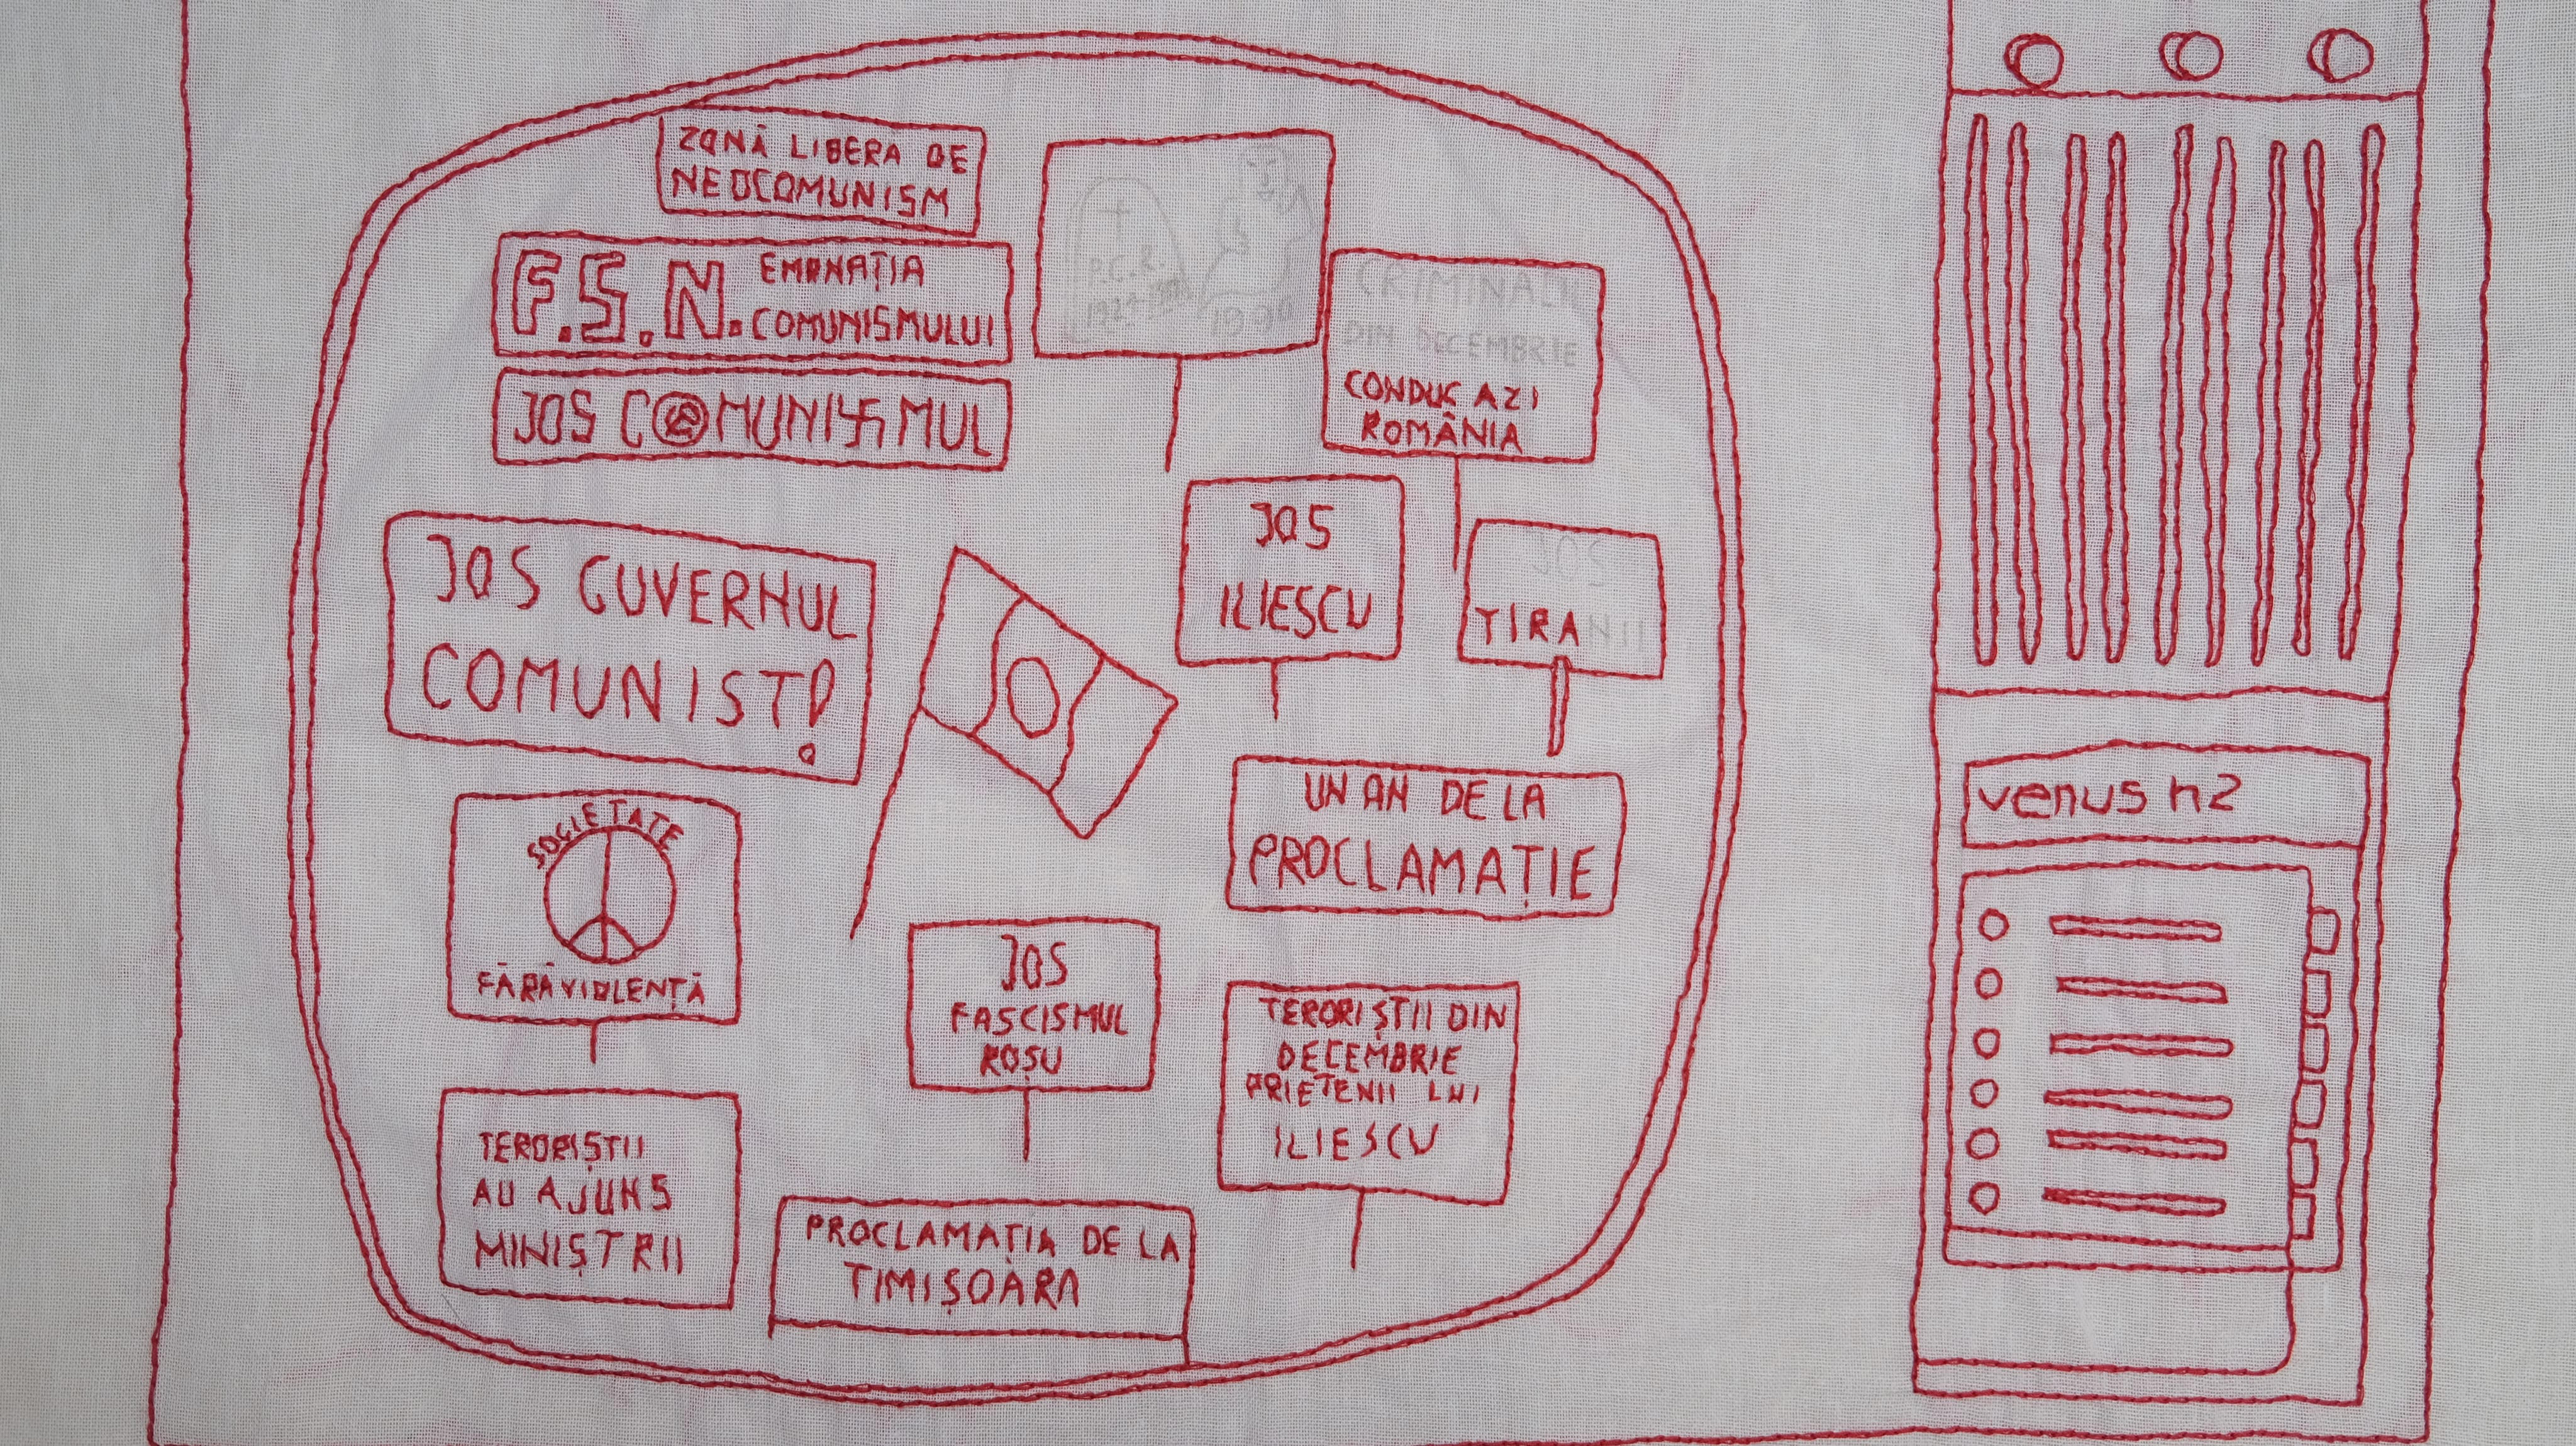 ZONĂ LIBERA DE
NEOCOMUNISM
F.S.N. EMANAȚIA
COMUNISMULUI
JOS COMUNISMUL
P.C.R.
CRIMINALII
DIN DECEMBRIE
CONDUC AZI
ROMÂNIA
JOS GUVERNUL
COMUNIST!
JOS
ILIESCU
JOS
TIRANII
UN AN DE LA
PROCLAMAȚIE
SOCIETATE
FĂRĂ VIOLENȚĂ
JOS
FASCISMUL
ROȘU
TERORIȘTII DIN
DECEMBRIE
PRIETENII LUI
ILIESCU
TERORIȘTII
AU AJUNS
MINIȘTRII
PROCLAMAȚIA DE LA
TIMIȘOARA
venus n2